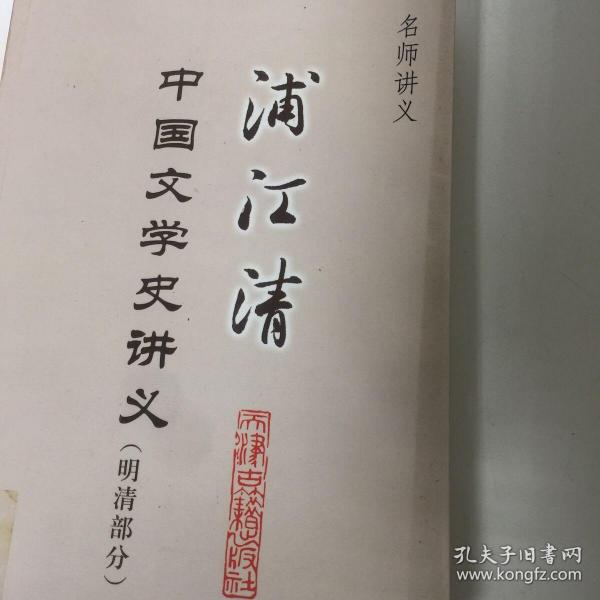 名师讲义
浦江清
中国文学史讲义(明清部分)
天津古籍出版社
孔夫子旧书网
www.kongfz.com